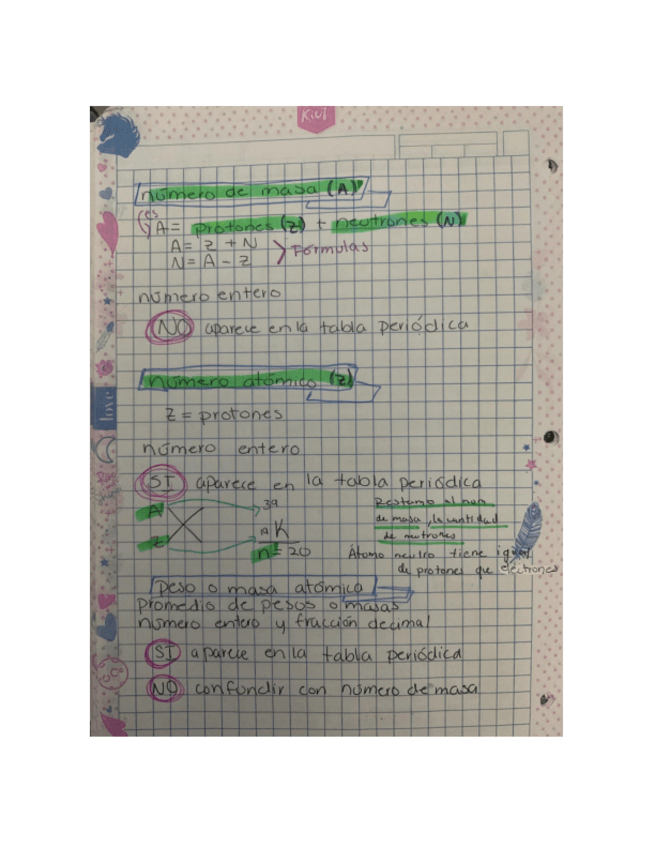 KIUT
número de masa (A)
(es
A = protones (z) + neutrones (N)
A = z + N
N = A - z
Fórmulas
número entero
NO aparece en la tabla periódica
número atómico (z)
love
z = protones
número entero
SI aparece en la tabla periódica
A
39
K
19
z
n = 20
Restamos al num
de masa, la cantidad
de neutrones
Átomo neutro tiene igual
de protones que electrones
peso o masa atómico
promedio de pesos o masas
número entero y fracción decimal
SI aparece en la tabla periódica
NO confundir con número de masa